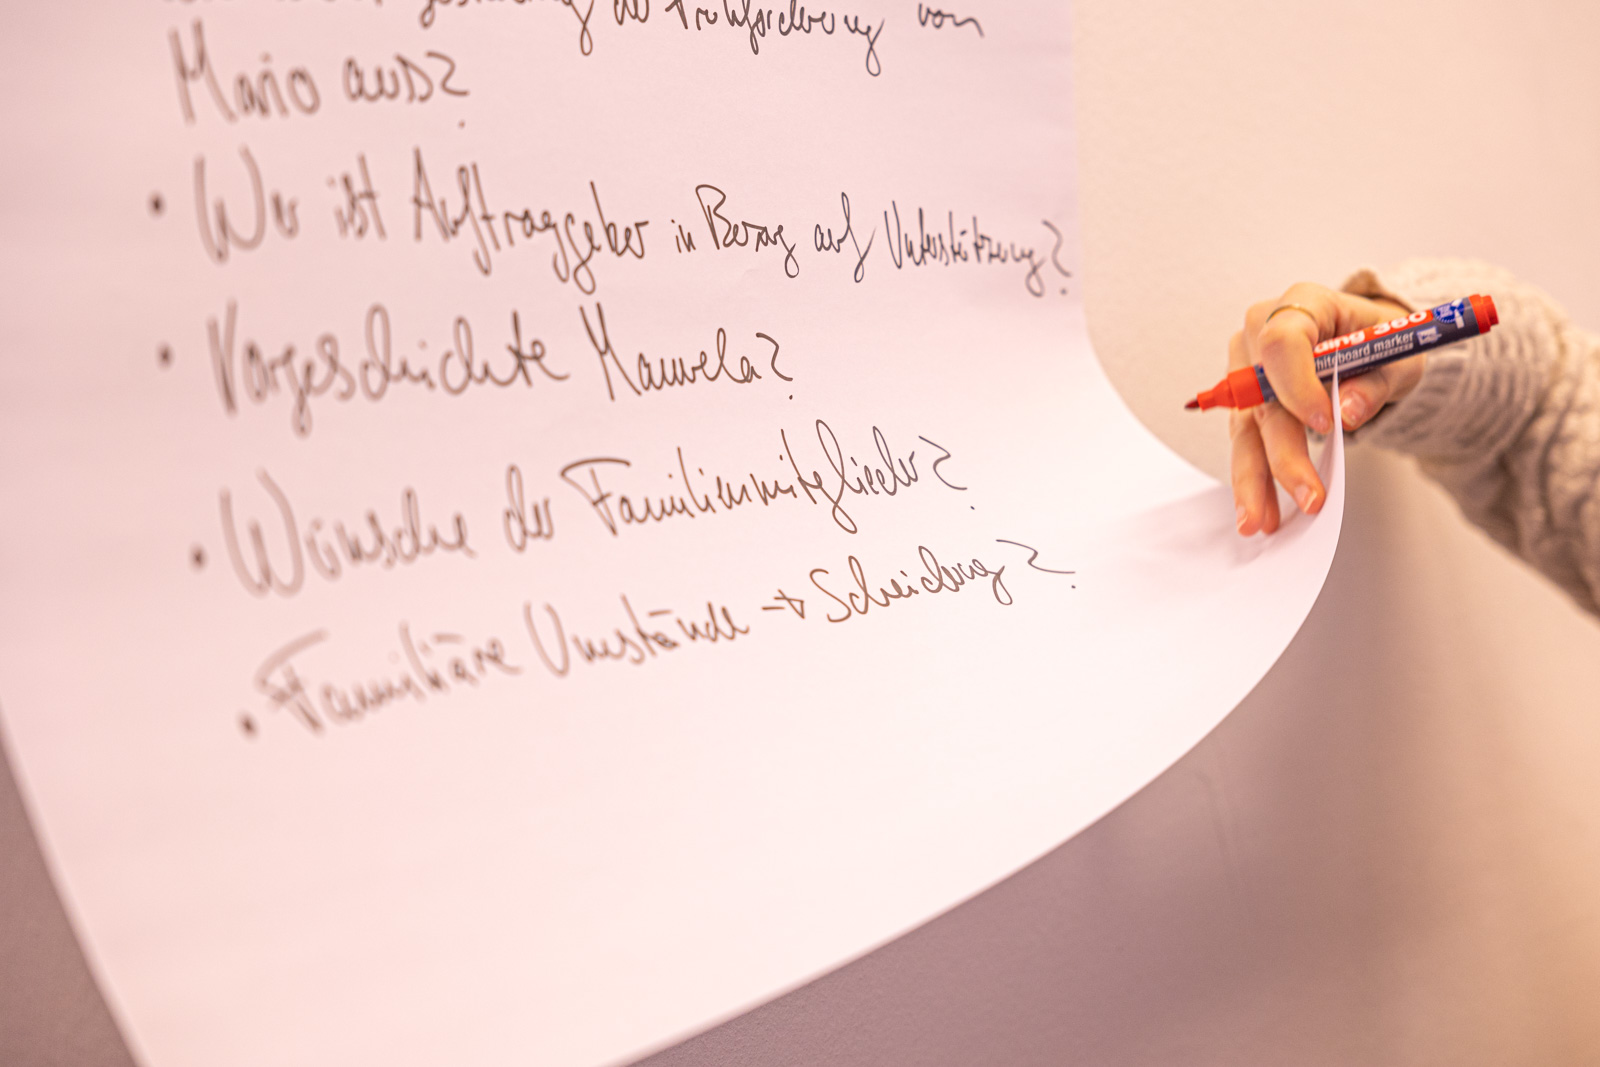 der Frühförderung von
Mario aus?
• Wer ist Auftraggeber in Bezug auf Unterstützung?
• Vorgeschichte Manuela?
• Wünsche der Familienmitglieder?
• Familiäre Umstände → Scheidung?
ding 360
whiteboard marker